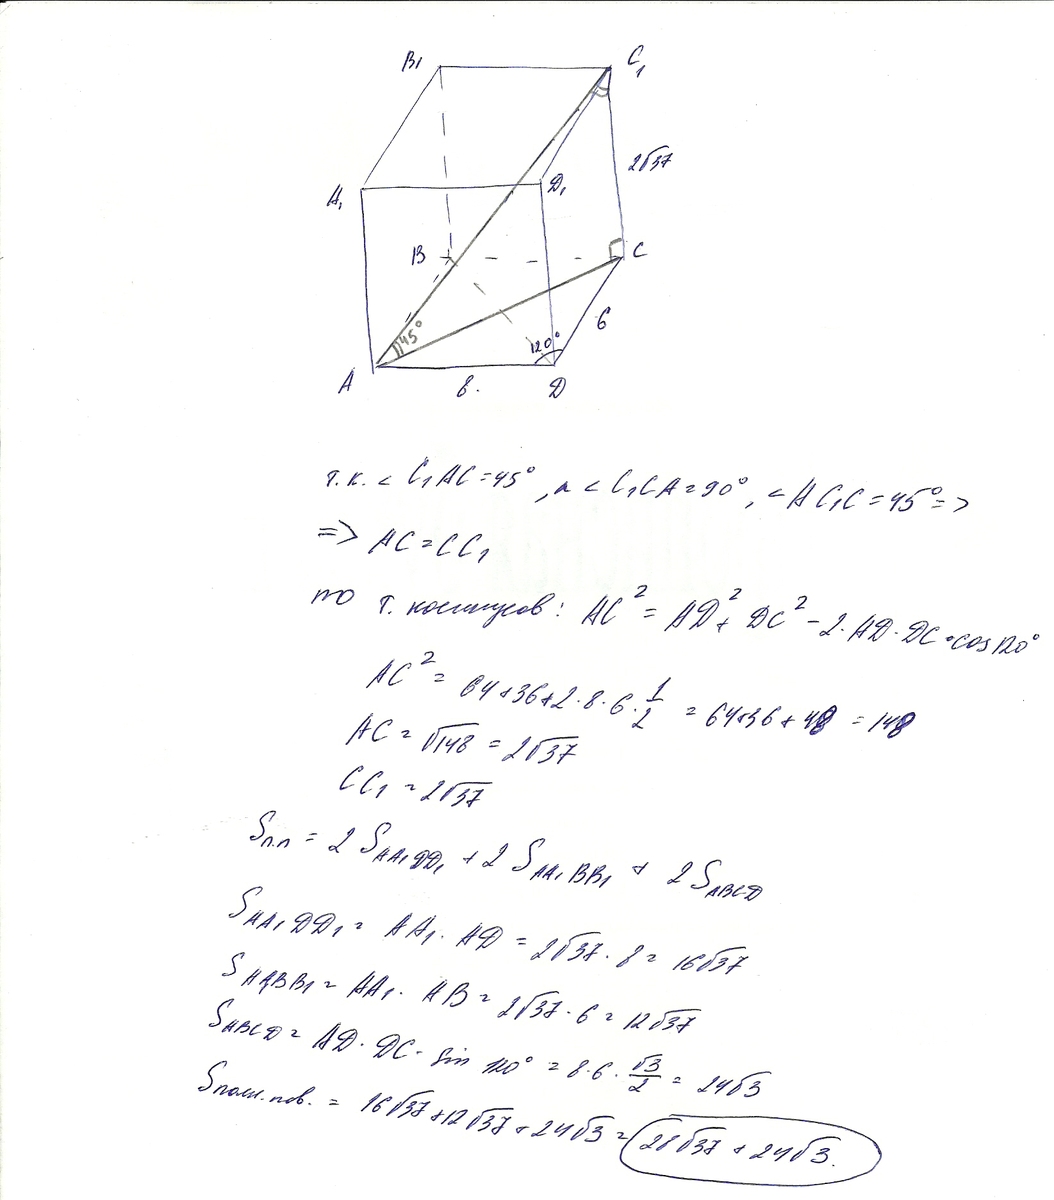 B₁ C₁
2√37
A₁ D₁
B C
45° 120° 6
A 8. D
т.к. < C₁AC = 45°, а < C₁CA = 90°, < AC₁C = 45° =>
=> AC = CC₁
по т. косинусов: AC² = AD² + DC² - 2·AD·DC·cos120°
AC² = 64+36+2·8·6·1/2 = 64+36+48 = 148
AC = √148 = 2√37
CC₁ = 2√37
Sп.п = 2 SAA₁DD₁ + 2 SAA₁BB₁ + 2 SABCD
SAA₁DD₁ = AA₁ · AD = 2√37 · 8 = 16√37
SAA₁BB₁ = AA₁ · AB = 2√37 · 6 = 12√37
SABCD = AD · DC · sin 120° = 8·6·√3/2 = 24√3
Sполн.пов. = 16√37+12√37+24√3 = 28√37 + 24√3.